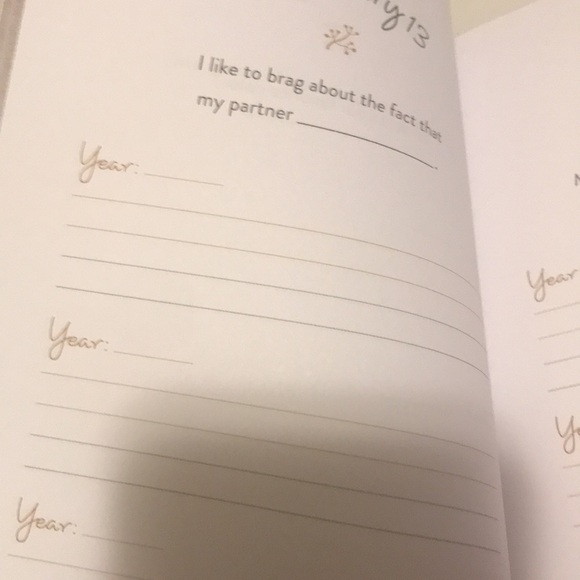 y 13
I like to brag about the fact that
my partner ____________.
Year: ______
Year: ______
Year: ______
Year